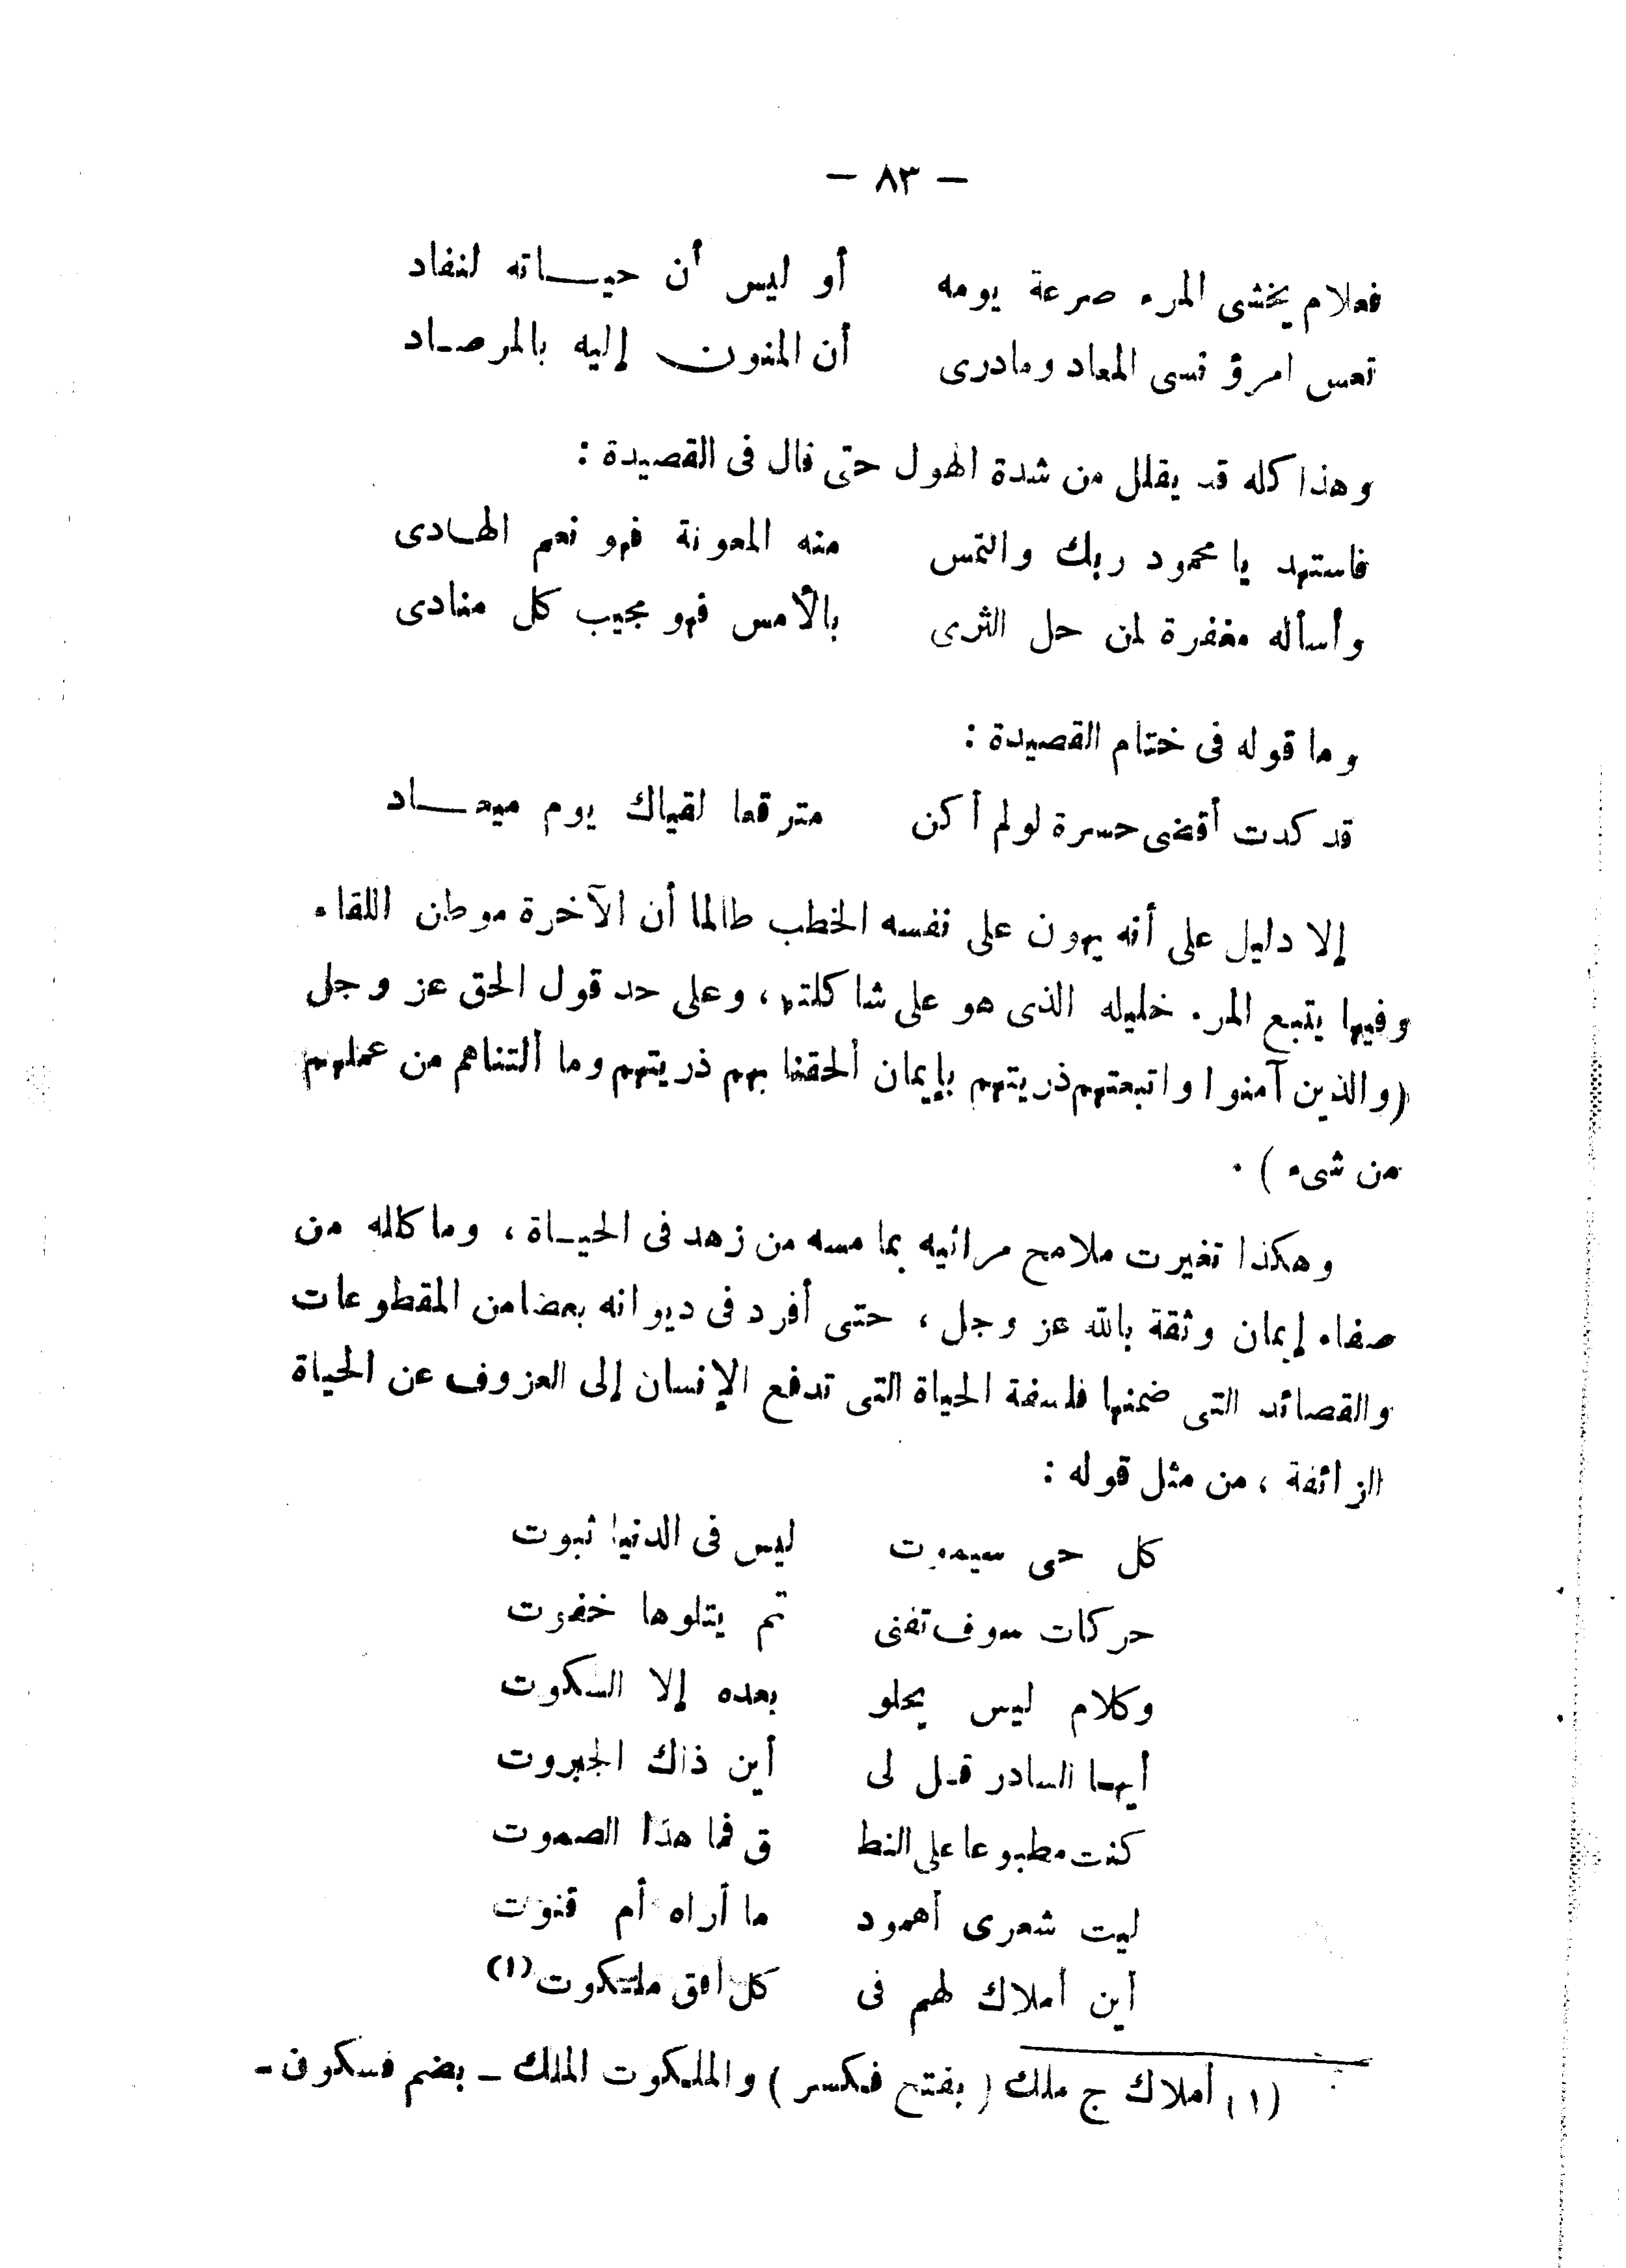 — ٨٣ —
فعلام يخشى المرء صرعة يومه    أو ليس أن حياته لنفاد
تعس امرؤ نسى المعاد ومادرى    أن المنون إليه بالمرصاد
وهذا كله قد يقلل من شدة الهول حتى قال فى القصيدة :
فاستهد يا محمود ربك والتمس    منه المعونة فهو نعم الهادى
وأسأله مغفرة لمن حل الثرى    بالأمس فهو مجيب كل منادى
وما قوله فى ختام القصيدة :
قد كدت أقضى حسرة لو لم أكن    مترقعا لقياك يوم ميعاد
إلا دليل على أنه يهون على نفسه الخطب طالما أن الآخرة موطن اللقاء
وفيها يتبع المرء خليله الذى هو على شاكلته ، وعلى حد قول الحق عز وجل
(والذين آمنوا واتبعتهم ذريتهم بإيمان ألحقنا بهم ذريتهم وما ألتناهم من عملهم
من شىء ) .
وهكذا تغيرت ملامح مراثيه بما مسه من زهد فى الحياة ، وما كالله من
صفاء إيمان وثقة بالله عز وجل ، حتى أفرد فى ديوانه بعضا من المقطوعات
والقصائد التى ضمنها فلسفة الحياة التى تدفع الإنسان إلى العزوف عن الحياة
الزائفة ، من مثل قوله :
كل حى سيموت    ليس فى الدنيا ثبوت
حركات سوف تفنى    ثم يتلوها خفوت
وكلام ليس يحلو    بعده إلا السكوت
أيها السادر قل لى    أين ذاك الجبروت
كنت مطبوعا على النط    ق فما هذا الصموت
ليت شعرى أهمود    ما أراه أم قنوت
أين أملاك لهم فى    كل أفق ملكوت (١)
(١) أملاك ج ملك ( بفتح فكسر ) والملكوت الملك – بضم فسكون –